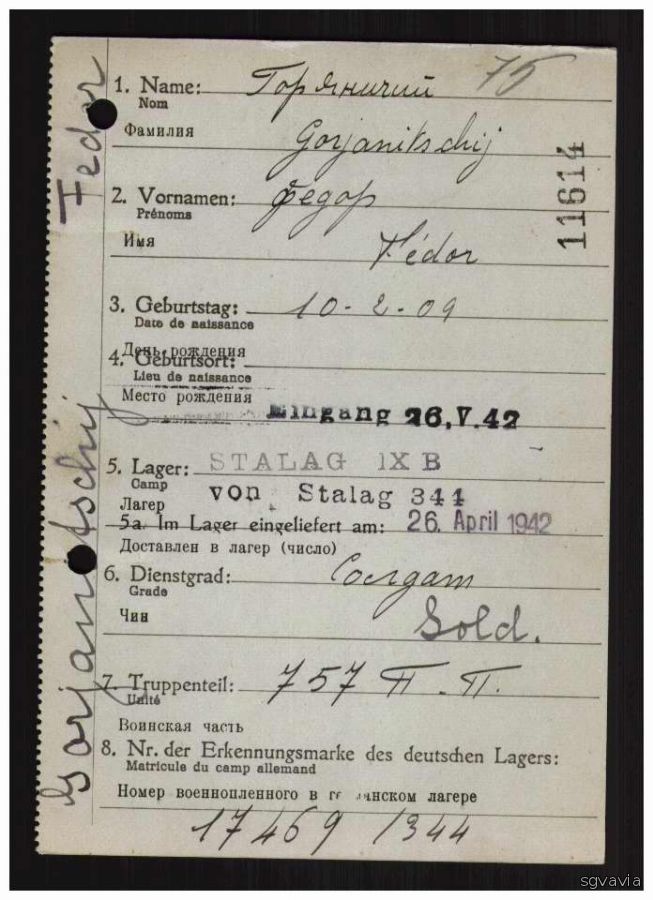 1. Name: Горяничий 75
Nom
Фамилия
Gorjanitschij
11614
2. Vornamen: Федор
Prénoms
Имя
Fédor
3. Geburtstag: 10-2-09
Date de naissance
День рождения
4. Geburtsort:
Lieu de naissance
Место рождения
Eingang 26.V.42
5. Lager: STALAG IXB
Camp
von Stalag 344
Лагер
5a. Im Lager eingeliefert am: 26. April 1942
Доставлен в лагер (число)
6. Dienstgrad: Солдат
Grade
Чин
Sold.
7. Truppenteil: 757 П.П.
Unité
Воинская часть
8. Nr. der Erkennungsmarke des deutschen Lagers:
Matricule du camp allemand
Номер военнопленного в лагере
17469 /344
Gorjanitschij Fedor
sgvavia